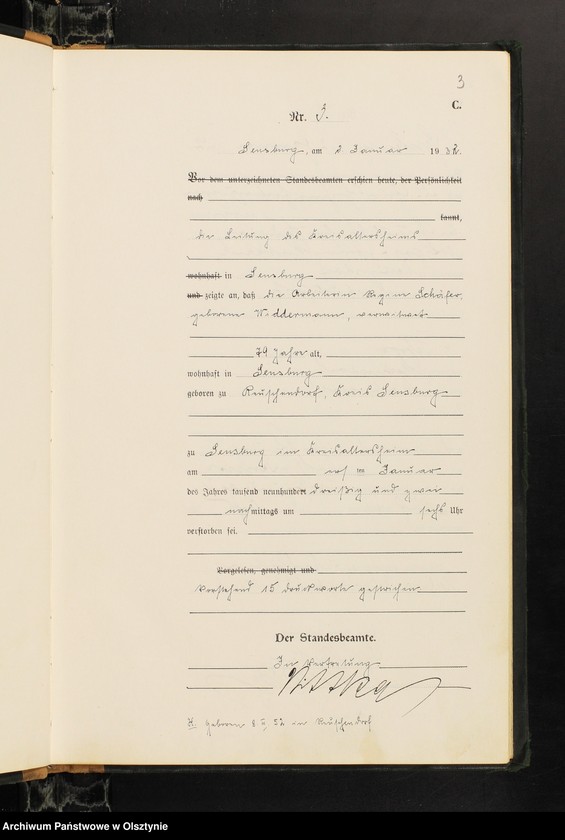 3
C.
Nr. 3.
Sensburg, am 2 Januar 1932.
Vor dem unterzeichneten Standesbeamten erschien heute, der Persönlichkeit
nach
kannt,
die Leitung des Kreisaltersheims
wohnhaft in Sensburg
und zeigte an, daß die Arbeiterin Regine Schäfer,
geborene Weddermann, verwitwet
79 Jahre alt,
wohnhaft in Sensburg
geboren zu Reuschendorf, Kreis Sensburg
zu Sensburg im Kreisaltersheim
am ersten Januar
des Jahres tausend neunhundert dreißig und zwei
nachmittags um sechs Uhr
verstorben sei.
Vorgelesen, genehmigt und
Vorstehend 15 Druckworte gestrichen
Der Standesbeamte.
In Vertretung
geboren 8 52 in Reuschendorf
Archiwum Państwowe w Olsztynie